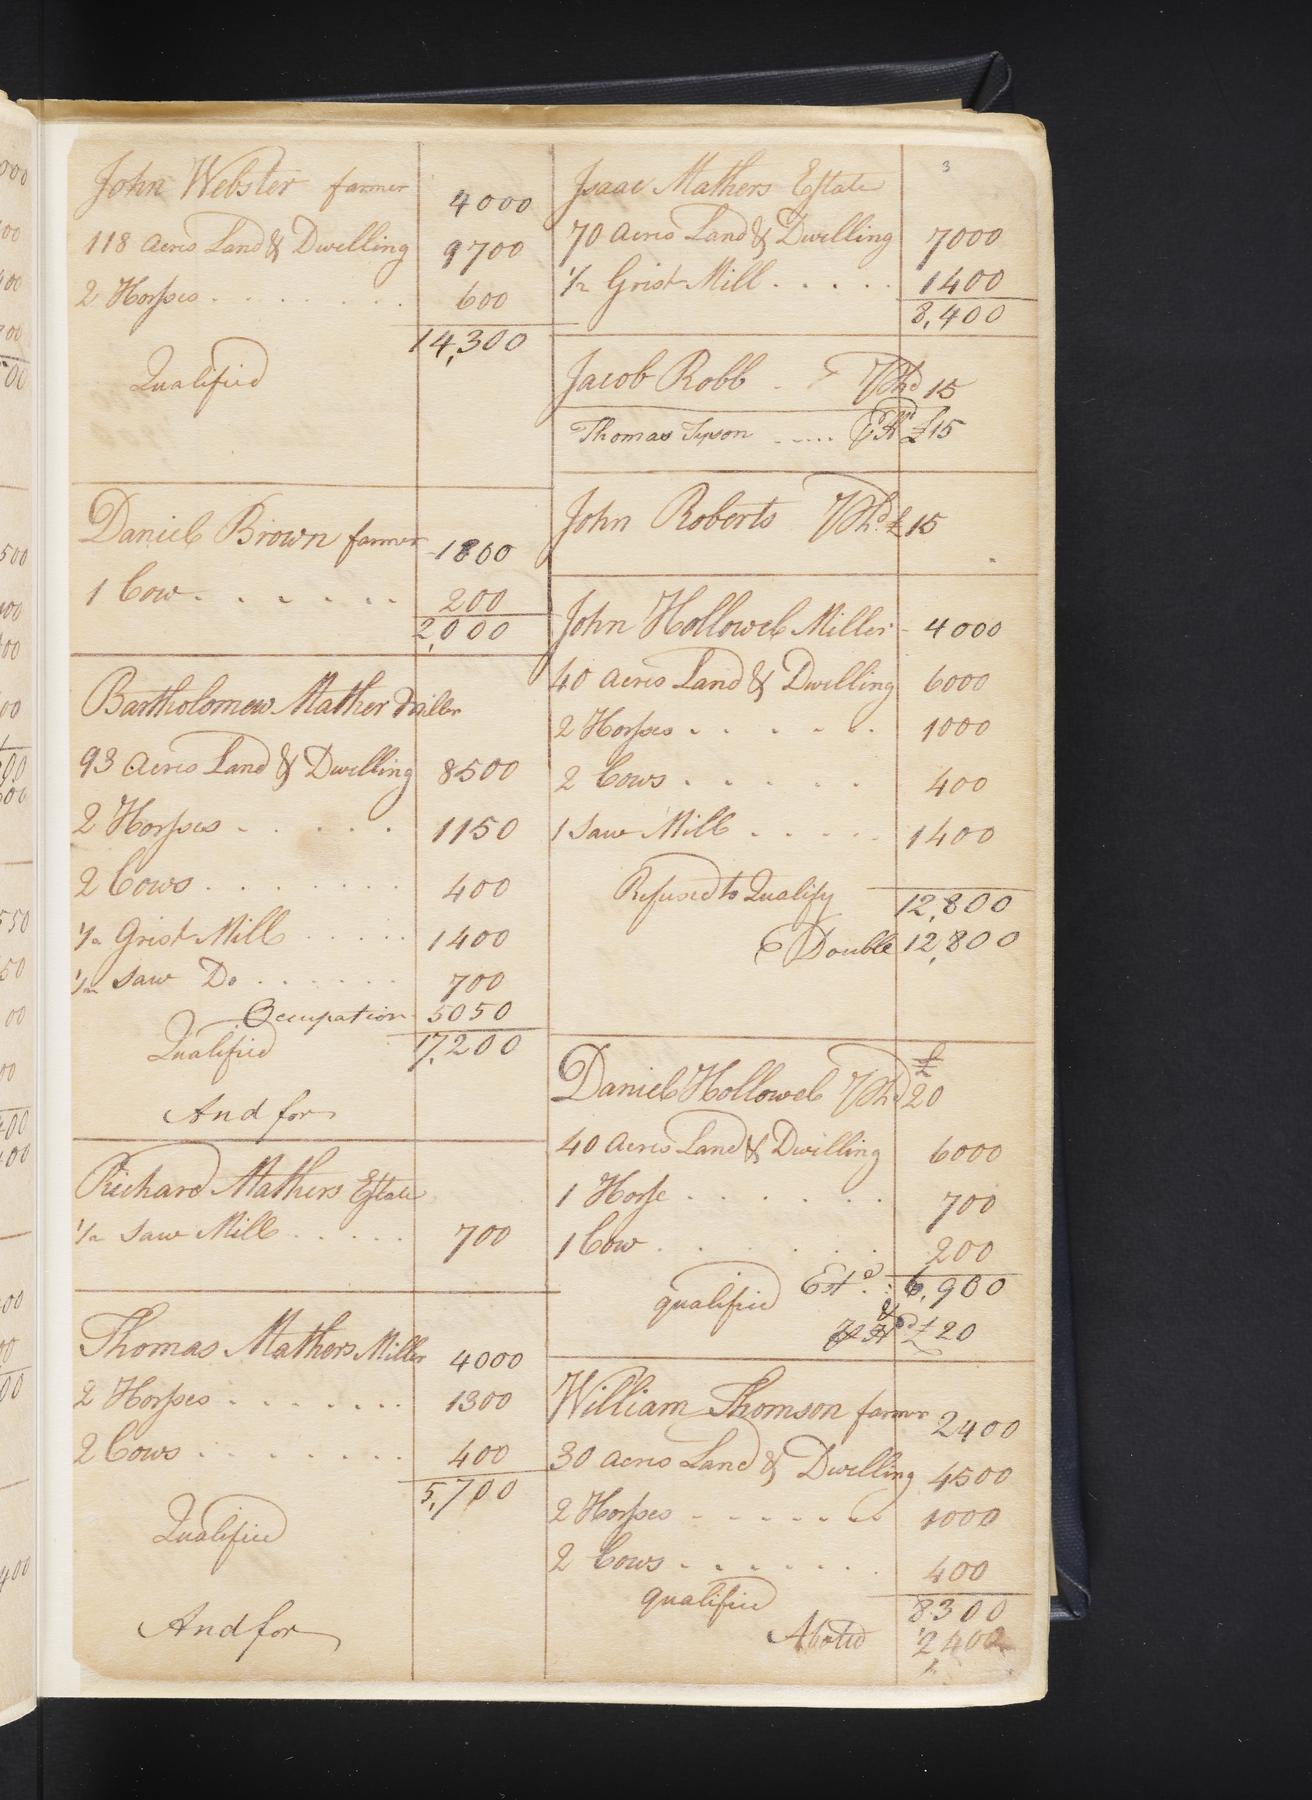 3
John Webster farmer 4000
118 Acres Land & Dwelling 9700
2 Horses . . . . . . . 600
14,300
Qualified
Daniel Brown farmer 1800
1 Cow . . . . . . 200
2,000
Bartholomew Mather Miller
93 Acres Land & Dwelling 8500
2 Horses . . . . . 1150
2 Cows . . . . . . . 400
1/2 Grist Mill . . . . . 1400
1/2 Saw Do . . . . . . . 700
Occupation 5050
17,200
Qualified
And for
Richard Mathers Estate
1/2 Saw Mill . . . . . 700
Thomas Mathers Miller 4000
2 Horses . . . . . . . 1300
2 Cows . . . . . . . . 400
5,700
Qualified
And for
Isaac Mathers Estate
70 Acres Land & Dwelling 7000
1/2 Grist Mill . . . . . 1400
8,400
Jacob Robb 15
Thomas £15
John Roberts £15
John Hollowel Miller 4000
40 Acres Land & Dwelling 6000
2 Horses . . . . . . 1000
2 Cows . . . . . 400
1 Saw Mill . . . . . 1400
Refused to Qualify 12,800
Double 12,800
Daniel Hollowel £ 20
40 Acres Land & Dwelling 6000
1 Horse . . . . . . 700
1 Cow . . . . . . 200
Estd. 6,900
qualified
& £ 20
William Thomson farmer 2400
30 Acres Land & Dwelling 4500
2 Horses . . . . . . . 1000
2 Cows . . . . . . . 400
qualified 8300
Abated 2,400